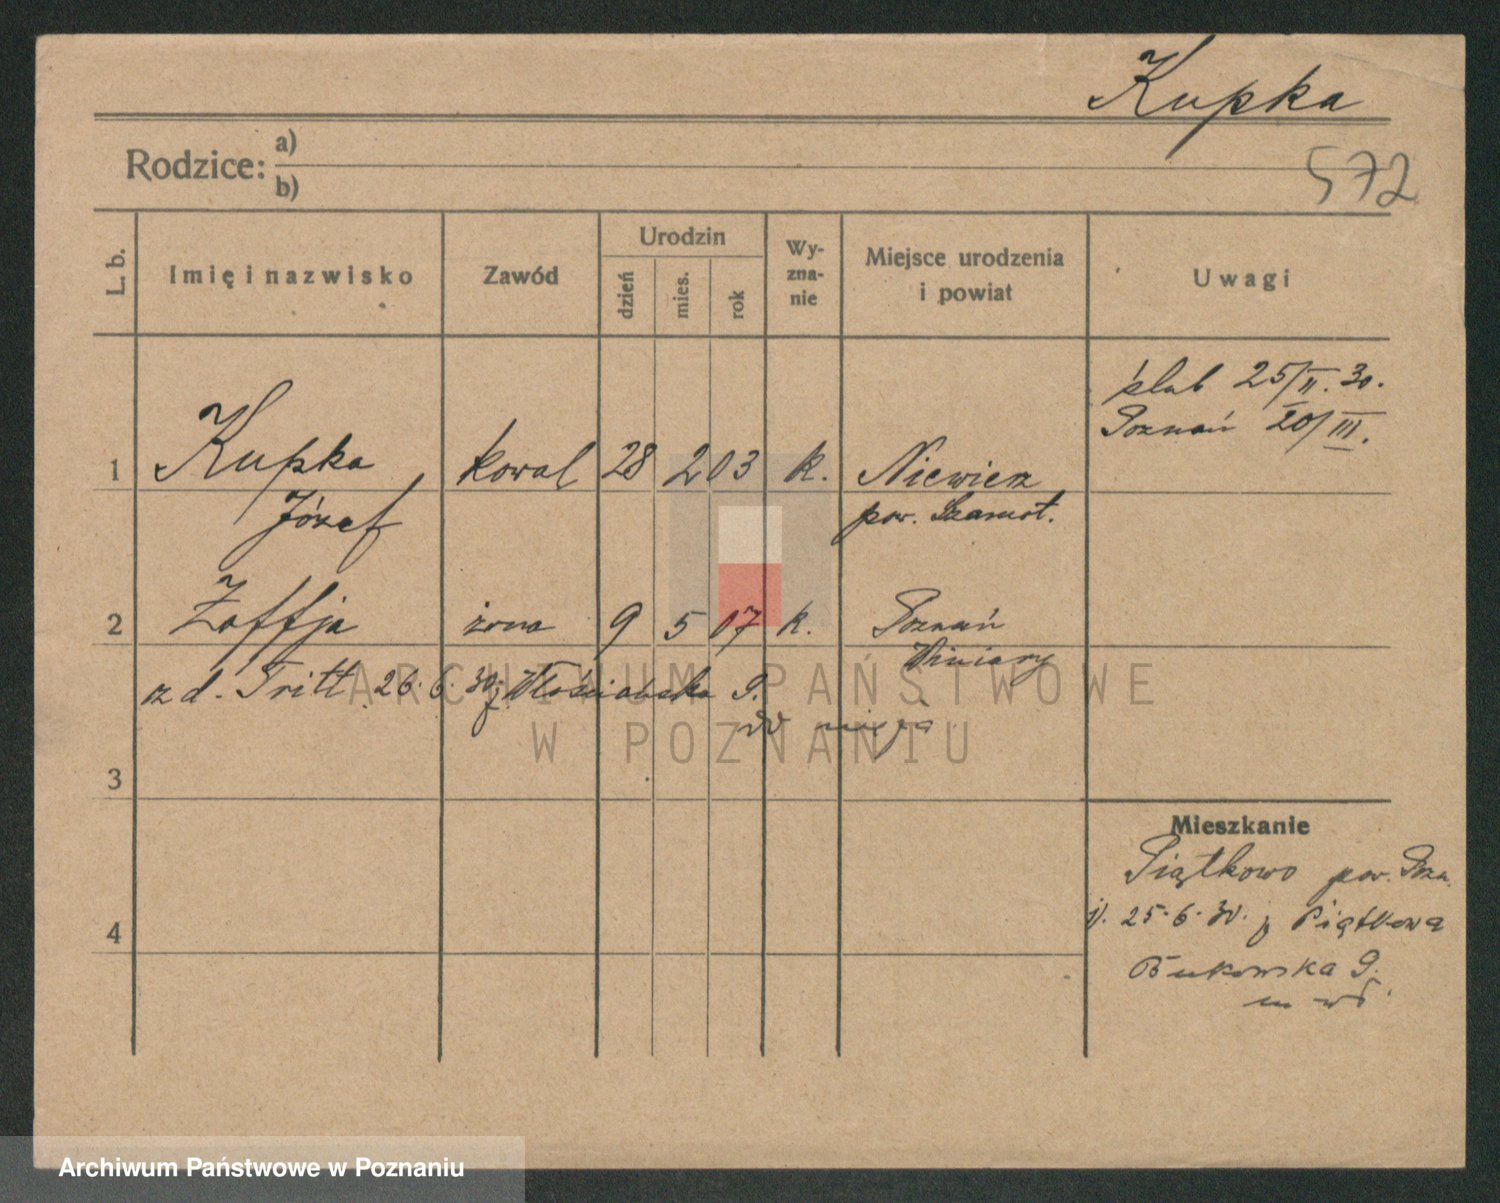 Kupka
572
Rodzice: a)
b)
L. b.
Imię i nazwisko
Zawód
Urodzin
dzień
mies.
rok
Wy-
zna-
nie
Miejsce urodzenia
i powiat
Uwagi
ślub 25/II. 30.
Poznań 20/III.
1 Kupka kowal 28 2 03 k. Niewierz
Józef pow. Szamot.
2 Zoffja żona 9 5 07 k. Poznań
Winiary
z d. Tritt. 26.6.30. z Włościańska 9.
3
4
Mieszkanie
Piątkowo pow.
25.6.30. z Piątkowa
Bukowska 9.
ARCHIWUM PAŃSTWOWE
W POZNANIU
Archiwum Państwowe w Poznaniu